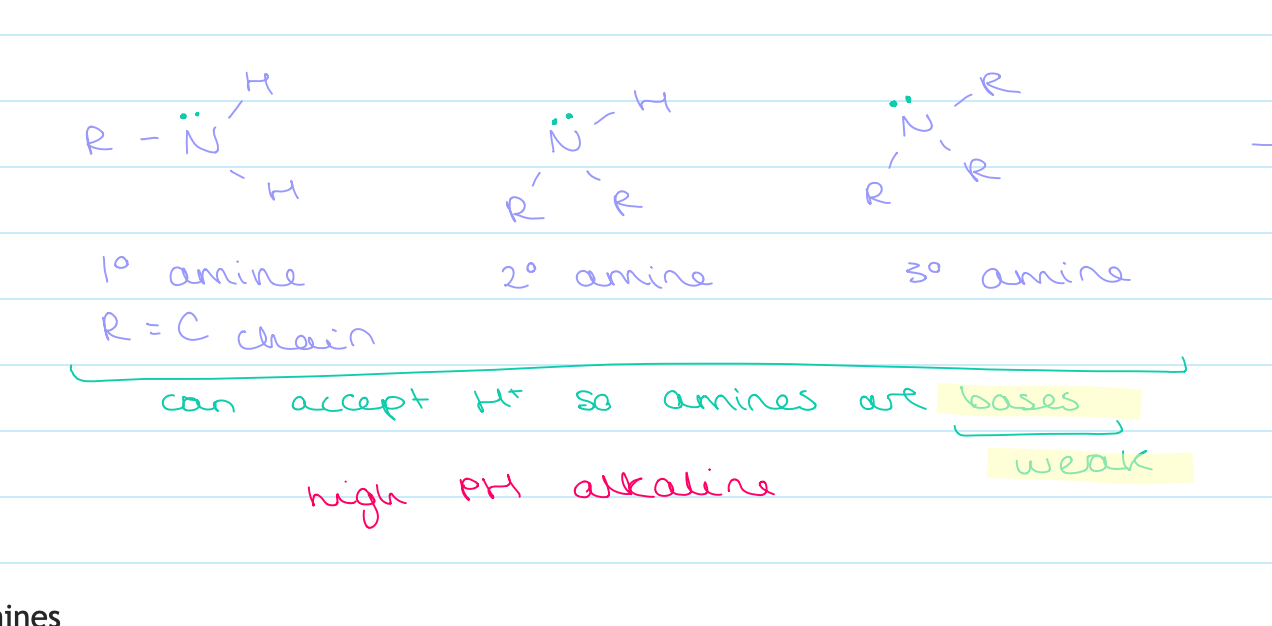 H
R - N̈
H
N̈ - H
R R
N̈ - R
R R
1° amine 2° amine 3° amine
R = C chain
can accept H⁺ so amines are bases
weak
high PH alkaline